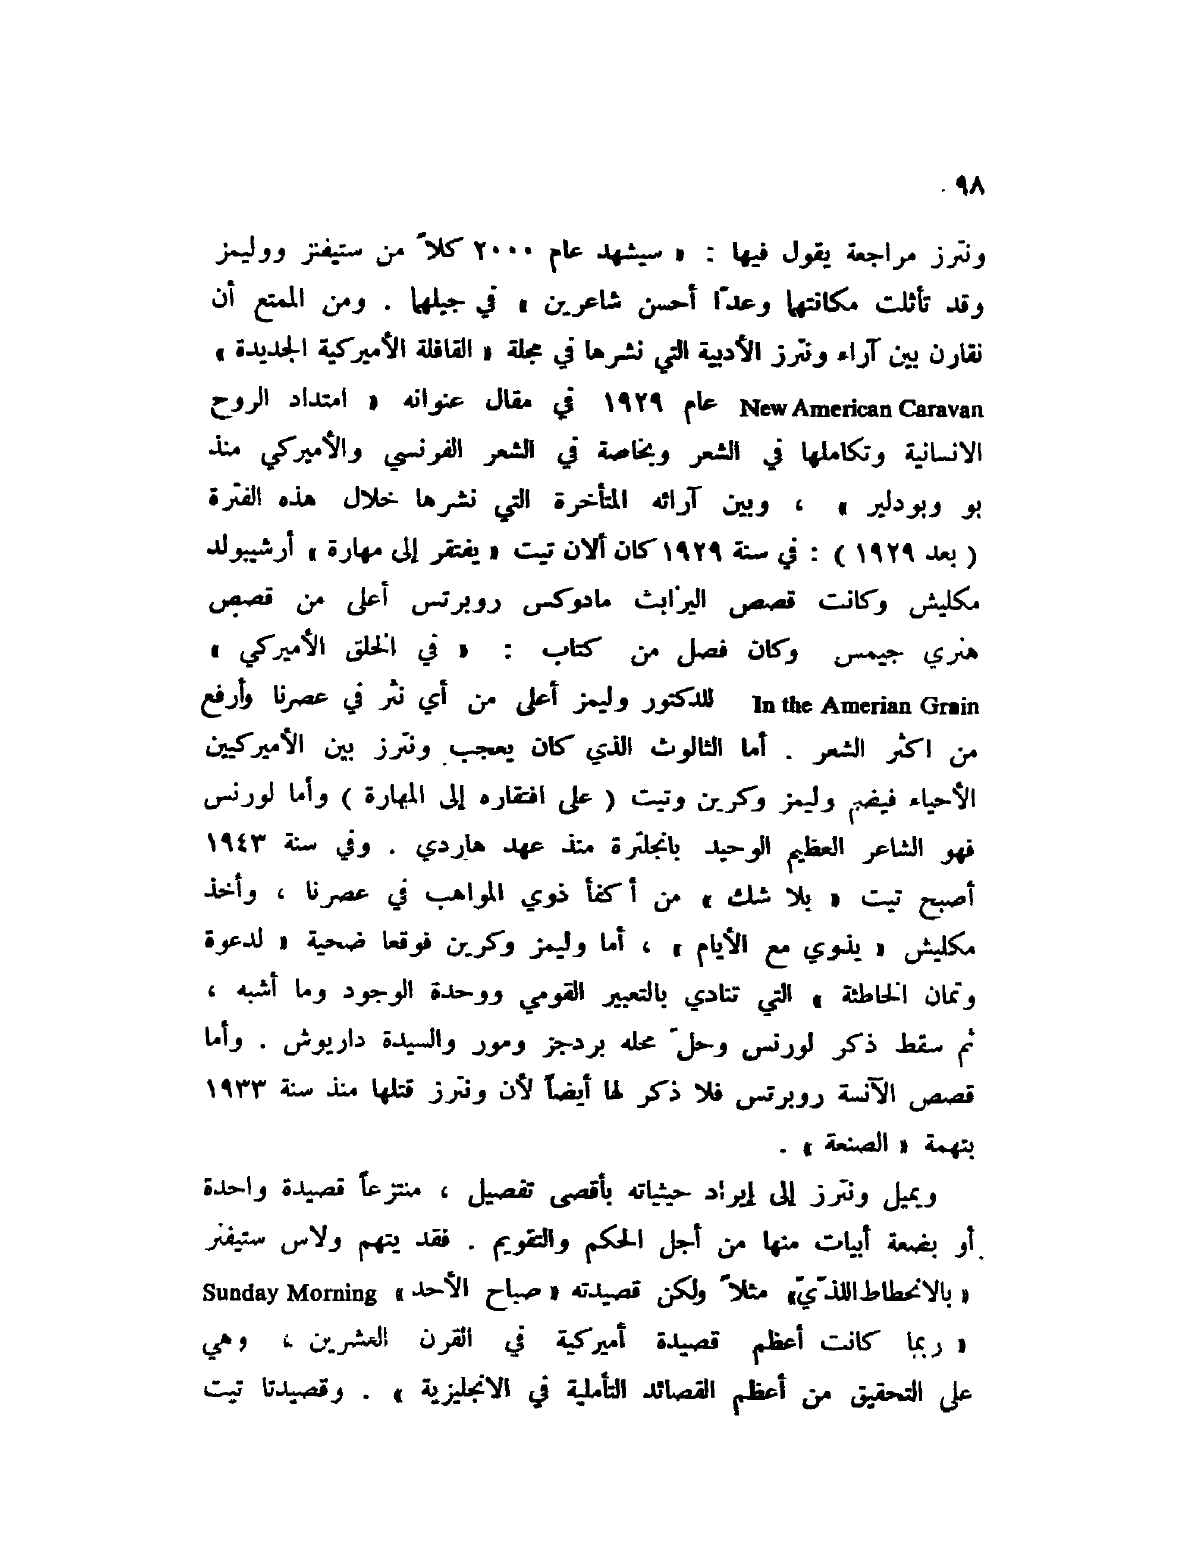 ٩٨
ونترز مراجعة يقول فيها : « سيشهد عام ٢٠٠٠ كلاً من ستيفنز ووليمز
وقد تأثلت مكانتها وعدّا أحسن شاعرين » في جيلهما . ومن الممتع أن
نقارن بين آراء ونترز الأدبية التي نشرها في مجلة « القافلة الأميركية الجديدة »
New American Caravan عام ١٩٢٩ في مقال عنوانه « امتداد الروح
الانسانية وتكاملها في الشعر وبخاصة في الشعر الفرنسي والأميركي منذ
بو وبودلير » ، وبين آرائه المتأخرة التي نشرها خلال هذه الفترة
( بعد ١٩٢٩ ) : في سنة ١٩٢٩ كان ألان تيت « يفتقر إلى مهارة » أرشيبولد
مكليش وكانت قصص اليزابث مادوكس روبرتس أعلى من قصص
هنري جيمس وكان فصل من كتاب : « في الخلق الأميركي »
In the Amerian Grain للدكتور وليمز أعلى من أي نثر في عصرنا وأرفع
من اكثر الشعر . أما الثالوث الذي كان يعجب ونترز بين الأميركيين
الأحياء فيضم وليمز وكرين وتيت ( على افتقاره إلى المهارة ) وأما لورنس
فهو الشاعر العظيم الوحيد بانجلترة منذ عهد هاردي . وفي سنة ١٩٤٣
أصبح تيت « بلا شك » من أكفأ ذوي المواهب في عصرنا ، وأخذ
مكليش « يذوي مع الأيام » ، أما وليمز وكرين فوقعا ضحية « لدعوة
وتمان الخاطئة » التي تنادي بالتعبير القومي ووحدة الوجود وما أشبه ،
ثم سقط ذكر لورنس وحلّ محله بردجز ومور والسيدة داريوش . وأما
قصص الآنسة روبرتس فلا ذكر لها أيضاً لأن ونترز قتلها منذ سنة ١٩٣٣
بتهمة « الصنعة » .
ويميل ونترز إلى إيراد حيثياته بأقصى تفصيل ، منتزعاً قصيدة واحدة
أو بضعة أبيات منها من أجل الحكم والتقويم . فقد يتهم ولاس ستيفنز
« بالانحطاط اللذّيّ» مثلاً ولكن قصيدته « صباح الأحد » Sunday Morning
« ربما كانت أعظم قصيدة أميركية في القرن العشرين ، وهي
على التحقيق من أعظم القصائد التأملية في الانجليزية » . وقصيدتا تيت